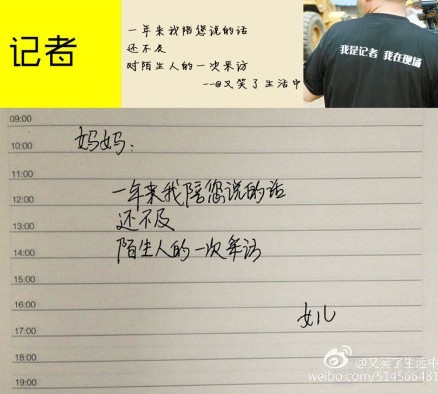 记者
一年来我陪您说的话
还不及
对陌生人的一次采访
---@又笑了生活中
我是记者 我在现场
09:00
10:00
妈妈:
11:00
12:00
一年来我陪您说的话
13:00
还不及
14:00
陌生人的一次采访
15:00
16:00
女儿
17:00
18:00
@又笑了生活中
weibo.com/514566481
19:00